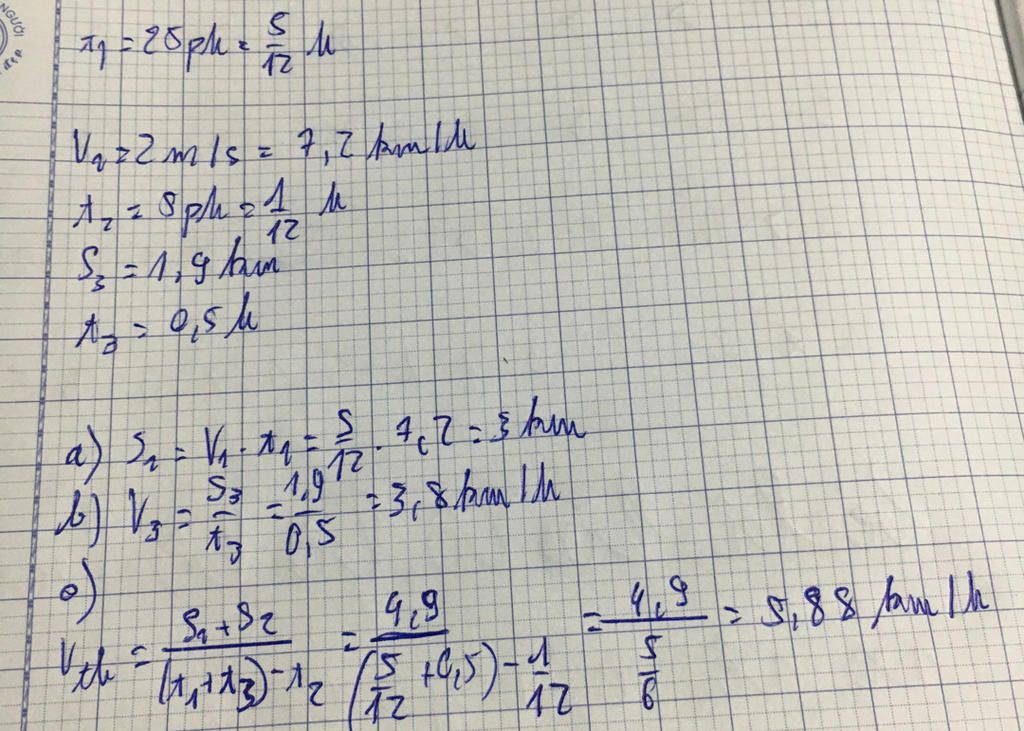 NGƯỜI
đẹp
t₁ = 25ph = 5/12 h
V₁ = 2 m/s = 7,2 km/h
t₂ = 5ph = 1/12 h
S₃ = 1,9 km
t₃ = 0,5 h
a) S₁ = V₁ . t₁ = 5/12 . 7,2 = 3 km
b) V₃ = S₃/t₃ = 1,9/0,5 = 3,8 km/h
c)
Vtb = (S₁ + S₂)/((t₁ + t₃) - t₂) = 4,9/((5/12 + 0,5) - 1/12) = 4,9/(5/6) = 5,88 km/h